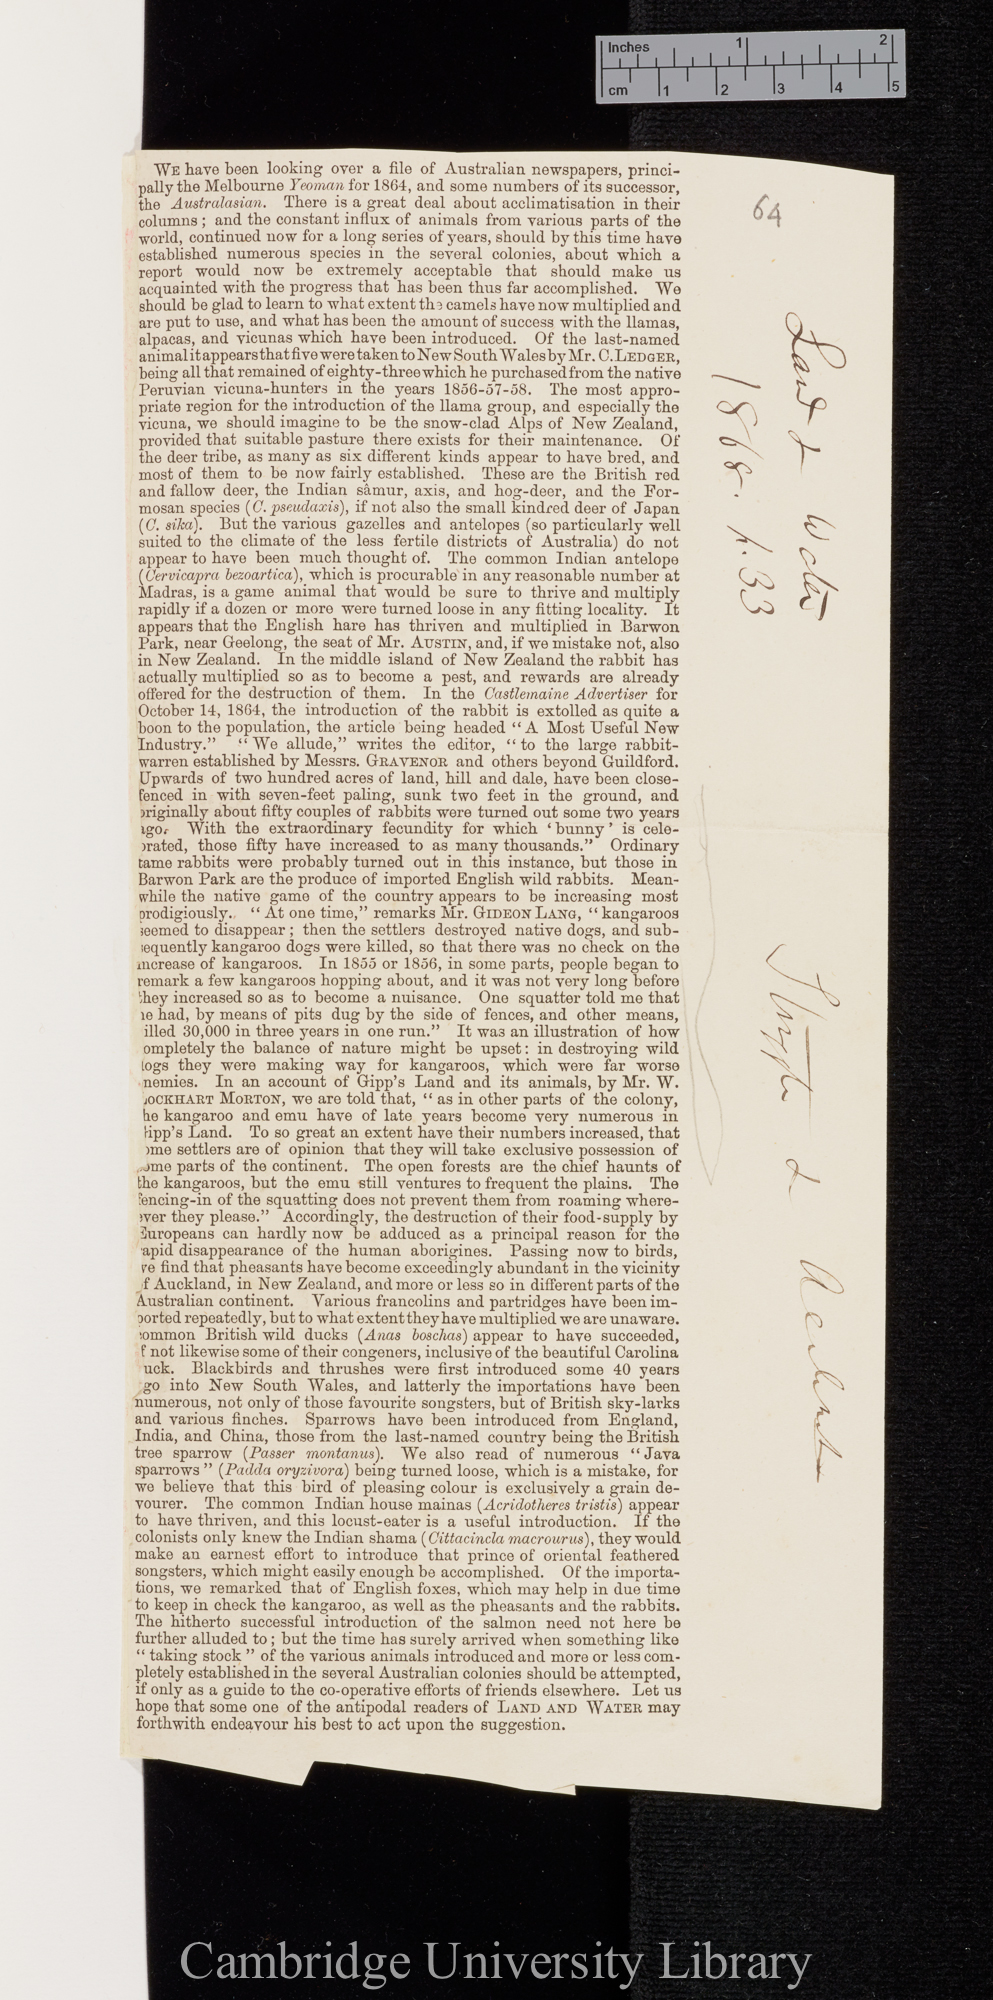 Inches 1 2
cm 1 2 3 4 5
WE have been looking over a file of Australian newspapers, princi-
pally the Melbourne Yeoman for 1864, and some numbers of its successor,
the Australasian. There is a great deal about acclimatisation in their
columns; and the constant influx of animals from various parts of the
world, continued now for a long series of years, should by this time have
established numerous species in the several colonies, about which a
report would now be extremely acceptable that should make us
acquainted with the progress that has been thus far accomplished. We
should be glad to learn to what extent the camels have now multiplied and
are put to use, and what has been the amount of success with the llamas,
alpacas, and vicunas which have been introduced. Of the last-named
animal it appears that five were taken to New South Wales by Mr. C. LEDGER,
being all that remained of eighty-three which he purchased from the native
Peruvian vicuna-hunters in the years 1856-57-58. The most appro-
priate region for the introduction of the llama group, and especially the
vicuna, we should imagine to be the snow-clad Alps of New Zealand,
provided that suitable pasture there exists for their maintenance. Of
the deer tribe, as many as six different kinds appear to have bred, and
most of them to be now fairly established. These are the British red
and fallow deer, the Indian sâmur, axis, and hog-deer, and the For-
mosan species (C. pseudaxis), if not also the small kindred deer of Japan
(C. sika). But the various gazelles and antelopes (so particularly well
suited to the climate of the less fertile districts of Australia) do not
appear to have been much thought of. The common Indian antelope
(Cervicapra bezoartica), which is procurable in any reasonable number at
Madras, is a game animal that would be sure to thrive and multiply
rapidly if a dozen or more were turned loose in any fitting locality. It
appears that the English hare has thriven and multiplied in Barwon
Park, near Geelong, the seat of Mr. AUSTIN, and, if we mistake not, also
in New Zealand. In the middle island of New Zealand the rabbit has
actually multiplied so as to become a pest, and rewards are already
offered for the destruction of them. In the Castlemaine Advertiser for
October 14, 1864, the introduction of the rabbit is extolled as quite a
boon to the population, the article being headed "A Most Useful New
Industry." "We allude," writes the editor, "to the large rabbit-
warren established by Messrs. GRAVENOR and others beyond Guildford.
Upwards of two hundred acres of land, hill and dale, have been close-
fenced in with seven-feet paling, sunk two feet in the ground, and
originally about fifty couples of rabbits were turned out some two years
ago. With the extraordinary fecundity for which 'bunny' is cele-
brated, those fifty have increased to as many thousands." Ordinary
tame rabbits were probably turned out in this instance, but those in
Barwon Park are the produce of imported English wild rabbits. Mean-
while the native game of the country appears to be increasing most
prodigiously. "At one time," remarks Mr. GIDEON LANG, "kangaroos
seemed to disappear; then the settlers destroyed native dogs, and sub-
sequently kangaroo dogs were killed, so that there was no check on the
increase of kangaroos. In 1855 or 1856, in some parts, people began to
remark a few kangaroos hopping about, and it was not very long before
they increased so as to become a nuisance. One squatter told me that
he had, by means of pits dug by the side of fences, and other means,
illed 30,000 in three years in one run." It was an illustration of how
ompletely the balance of nature might be upset: in destroying wild
ogs they were making way for kangaroos, which were far worse
nemies. In an account of Gipp's Land and its animals, by Mr. W.
OCKHART MORTON, we are told that, "as in other parts of the colony,
he kangaroo and emu have of late years become very numerous in
ipp's Land. To so great an extent have their numbers increased, that
ome settlers are of opinion that they will take exclusive possession of
some parts of the continent. The open forests are the chief haunts of
the kangaroos, but the emu still ventures to frequent the plains. The
fencing-in of the squatting does not prevent them from roaming where-
ever they please." Accordingly, the destruction of their food-supply by
Europeans can hardly now be adduced as a principal reason for the
rapid disappearance of the human aborigines. Passing now to birds,
we find that pheasants have become exceedingly abundant in the vicinity
of Auckland, in New Zealand, and more or less so in different parts of the
Australian continent. Various francolins and partridges have been im-
ported repeatedly, but to what extent they have multiplied we are unaware.
ommon British wild ducks (Anas boschas) appear to have succeeded,
f not likewise some of their congeners, inclusive of the beautiful Carolina
uck. Blackbirds and thrushes were first introduced some 40 years
go into New South Wales, and latterly the importations have been
numerous, not only of those favourite songsters, but of British sky-larks
and various finches. Sparrows have been introduced from England,
India, and China, those from the last-named country being the British
tree sparrow (Passer montanus). We also read of numerous "Java
sparrows" (Padda oryzivora) being turned loose, which is a mistake, for
we believe that this bird of pleasing colour is exclusively a grain de-
vourer. The common Indian house mainas (Acridotheres tristis) appear
to have thriven, and this locust-eater is a useful introduction. If the
colonists only knew the Indian shama (Cittacincla macrourus), they would
make an earnest effort to introduce that prince of oriental feathered
songsters, which might easily enough be accomplished. Of the importa-
tions, we remarked that of English foxes, which may help in due time
to keep in check the kangaroo, as well as the pheasants and the rabbits.
The hitherto successful introduction of the salmon need not here be
further alluded to; but the time has surely arrived when something like
"taking stock" of the various animals introduced and more or less com-
pletely established in the several Australian colonies should be attempted,
if only as a guide to the co-operative efforts of friends elsewhere. Let us
hope that some one of the antipodal readers of LAND AND WATER may
forthwith endeavour his best to act upon the suggestion.
64
Land & Water
1868. p. 33
Struggle &
Cambridge University Library